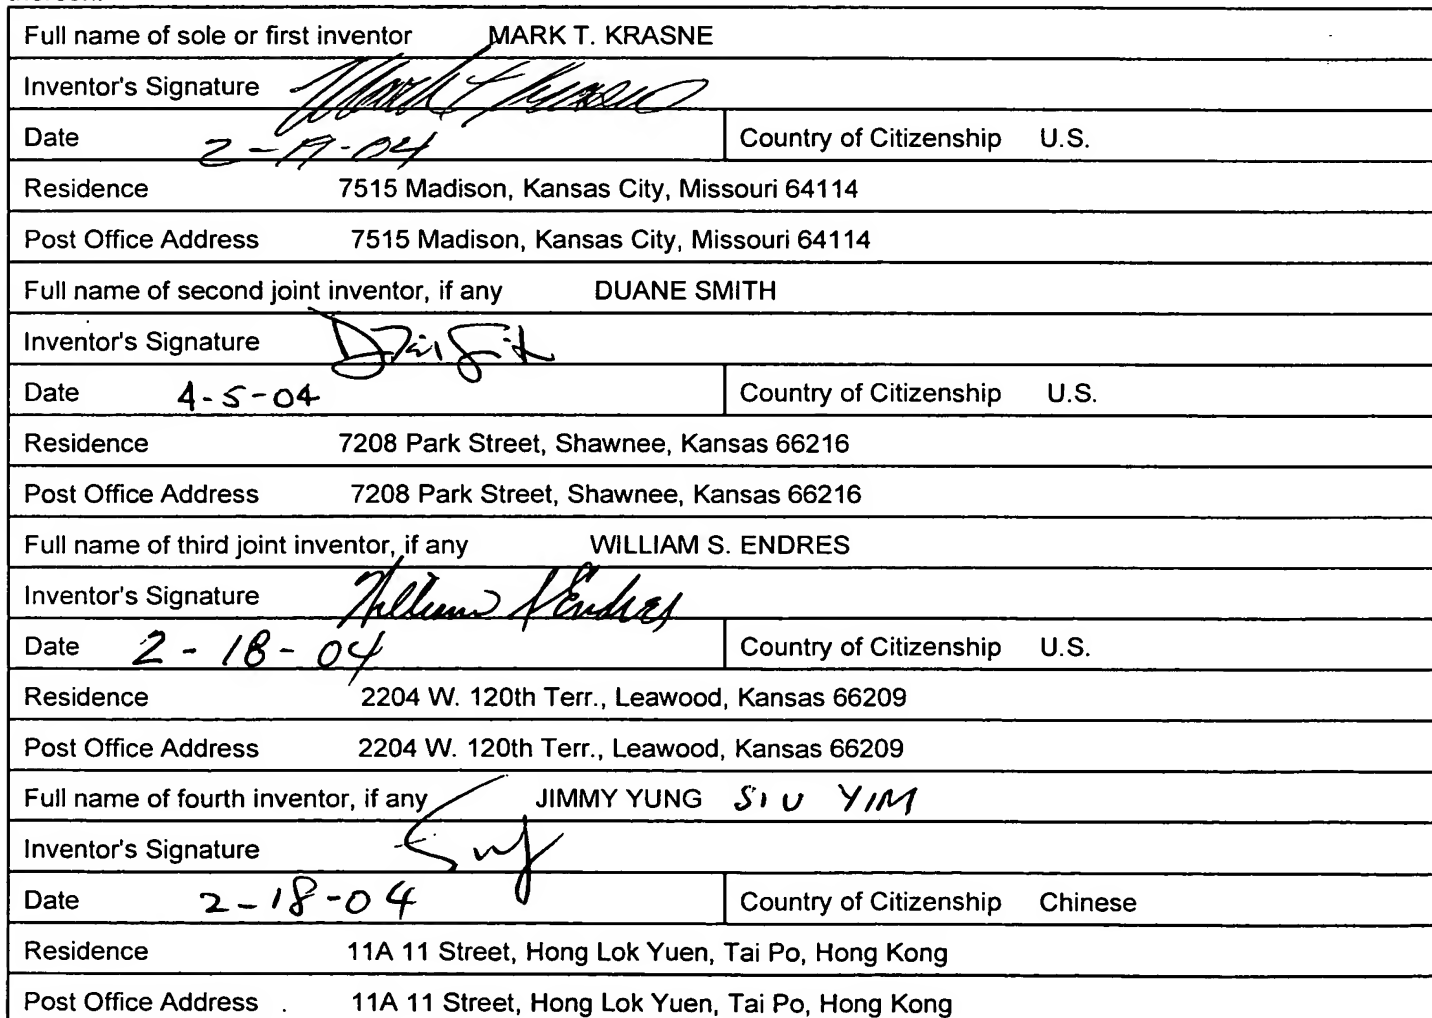 Full name of sole or first inventor MARK T. KRASNE
Inventor's Signature Mark T Krasne
Date 2-19-04 Country of Citizenship U.S.
Residence 7515 Madison, Kansas City, Missouri 64114
Post Office Address 7515 Madison, Kansas City, Missouri 64114
Full name of second joint inventor, if any DUANE SMITH
Inventor's Signature
Date 4-5-04 Country of Citizenship U.S.
Residence 7208 Park Street, Shawnee, Kansas 66216
Post Office Address 7208 Park Street, Shawnee, Kansas 66216
Full name of third joint inventor, if any WILLIAM S. ENDRES
Inventor's Signature William S Endres
Date 2-18-04 Country of Citizenship U.S.
Residence 2204 W. 120th Terr., Leawood, Kansas 66209
Post Office Address 2204 W. 120th Terr., Leawood, Kansas 66209
Full name of fourth inventor, if any JIMMY YUNG SIU YIM
Inventor's Signature
Date 2-18-04 Country of Citizenship Chinese
Residence 11A 11 Street, Hong Lok Yuen, Tai Po, Hong Kong
Post Office Address 11A 11 Street, Hong Lok Yuen, Tai Po, Hong Kong